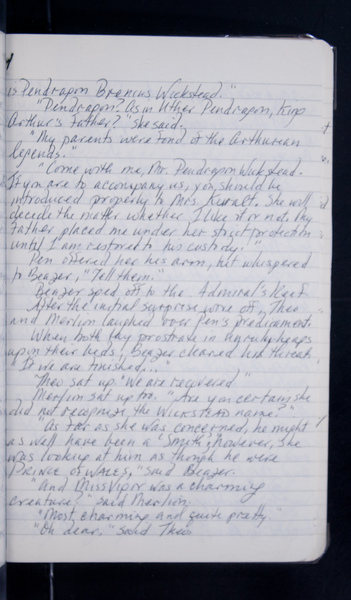 is Pendragon Brenius Wickstead."
"Pendragon? As in Uther Pendragon, King
Arthur's father?" she said.
"My parents were fond of the Arthurian
legends."
"Come with me, Mr. Pendragon Wickstead.
If you are to accompany us, you should be
introduced properly to Mrs. She will
decide the matter whether I like it or not. My
father placed me under her strict protection
until I am restored to his custody."
Pen offered her his arm, but whispered
to Beazer, "Tell them."
Beazer sped off to the Admiral's
After the initial surprise wore off, Theo
and Merlion laughed over Pen's predicament.
When both lay prostrate in heaps
upon their beds, Beazer cleared his throat.
"If we are finished..."
Theo sat up. "We are recovered"
Merlion sat up too. "Are you certain she
did not recognize the Wickstead name?"
"As far as she was concerned, he might
as well have been a 'Smith'; however, she
was looking at him as though he were
Prince of Wales," said Beazer.
"And Miss Vipor was a charming
creature?" said Merlion.
"Most charming and quite pretty."
"Oh dear," said Theo.